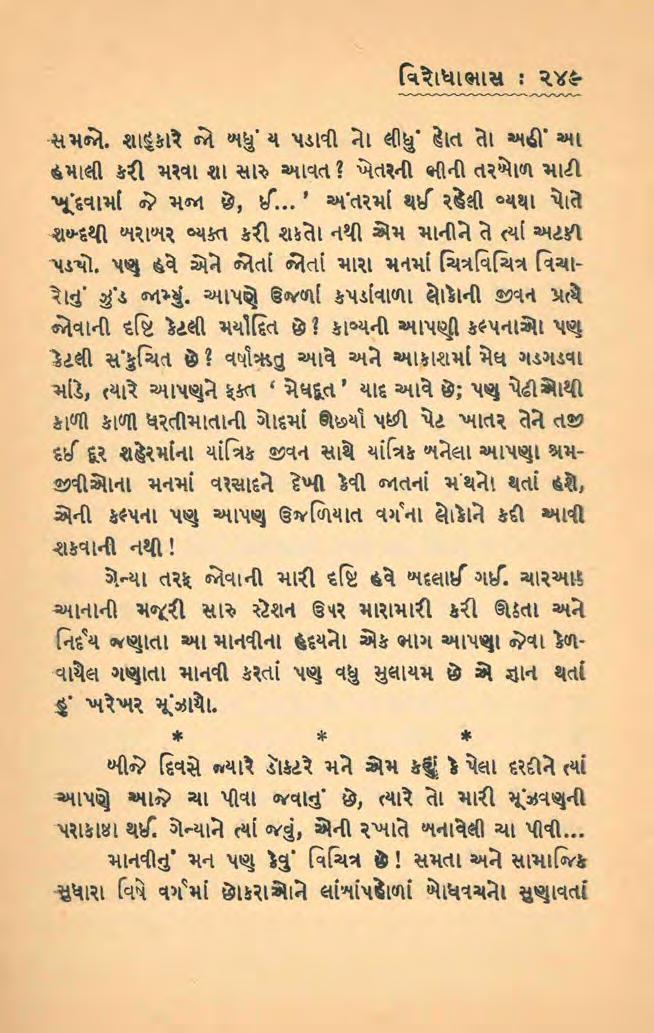 વિરોધાભાસ : ૨૪૯
સમજો. શાહુકારે જો બધું ય પડાવી નો લીધું હોત તો અહીં આ
હમાલી કરી મરવા શા સારુ આવત? ખેતરની ભીની તરબોળ માટી
ખૂંદવામાં જે મજા છે, ઈ...’ અંતરમાં થઈ રહેલી વ્યથા પોતે
શબ્દથી બરાબર વ્યક્ત કરી શકતો નથી એમ માનીને તે ત્યાં અટકી
પડયો. પણ હવે એને જોતાં જોતાં મારા મનમાં ચિત્રવિચિત્ર વિચા-
રોનું ઝુંડ જામ્યું. આપણે ઉજળાં કપડાંવાળા લોકોની જીવન પ્રત્યે
જોવાની દૃષ્ટિ કેટલી મર્યાદિત છે? કાવ્યની આપણી કલ્પનાઓ પણ
કેટલી સંકુચિત છે? વર્ષાઋતુ આવે અને આકાશમાં મેઘ ગડગડવા
માંડે, ત્યારે આપણને ફક્ત ‘ મેઘદૂત ’ યાદ આવે છે; પણ પેઢીઓથી
કાળી કાળી ધરતીમાતાની ગોદમાં ઊછર્યા પછી પેટ ખાતર તેને તજી
દઈ દૂર શહેરમાંના યાંત્રિક જીવન સાથે યાંત્રિક બનેલા આપણા શ્રમ-
જીવીઓના મનમાં વરસાદને દેખી કેવી જાતનાં મંથનો થતાં હશે,
એની કલ્પના પણ આપણ ઉજળિયાત વર્ગના લોકોને કદી આવી
શકવાની નથી!
ગેન્યા તરફ જોવાની મારી દૃષ્ટિ હવે બદલાઈ ગઈ. ચારઆઠ
આનાની મજૂરી સારુ સ્ટેશન ઉપર મારામારી કરી ઊઠતા અને
નિર્દય જણાતા આ માનવીના હૃદયનો એક ભાગ આપણા જેવા કેળ-
વાયેલ ગણાતા માનવી કરતાં પણ વધુ મુલાયમ છે એ જ્ઞાન થતાં
હું ખરેખર મૂંઝાયો.
* * *
બીજે દિવસે જ્યારે ડૉક્ટરે મને એમ કહ્યું કે પેલા દરદીને ત્યાં
આપણે આજે ચા પીવા જવાનું છે, ત્યારે તો મારી મૂંઝવણની
પરાકાષ્ઠા થઈ. ગેન્યાને ત્યાં જવું, એની રખાતે બનાવેલી ચા પીવી...
માનવીનું મન પણ કેવું વિચિત્ર છે! સમતા અને સામાજિક
સુધારા વિષે વર્ગમાં છોકરાઓને લાંબાંપહોળાં બોધવચનો સુણાવતાં